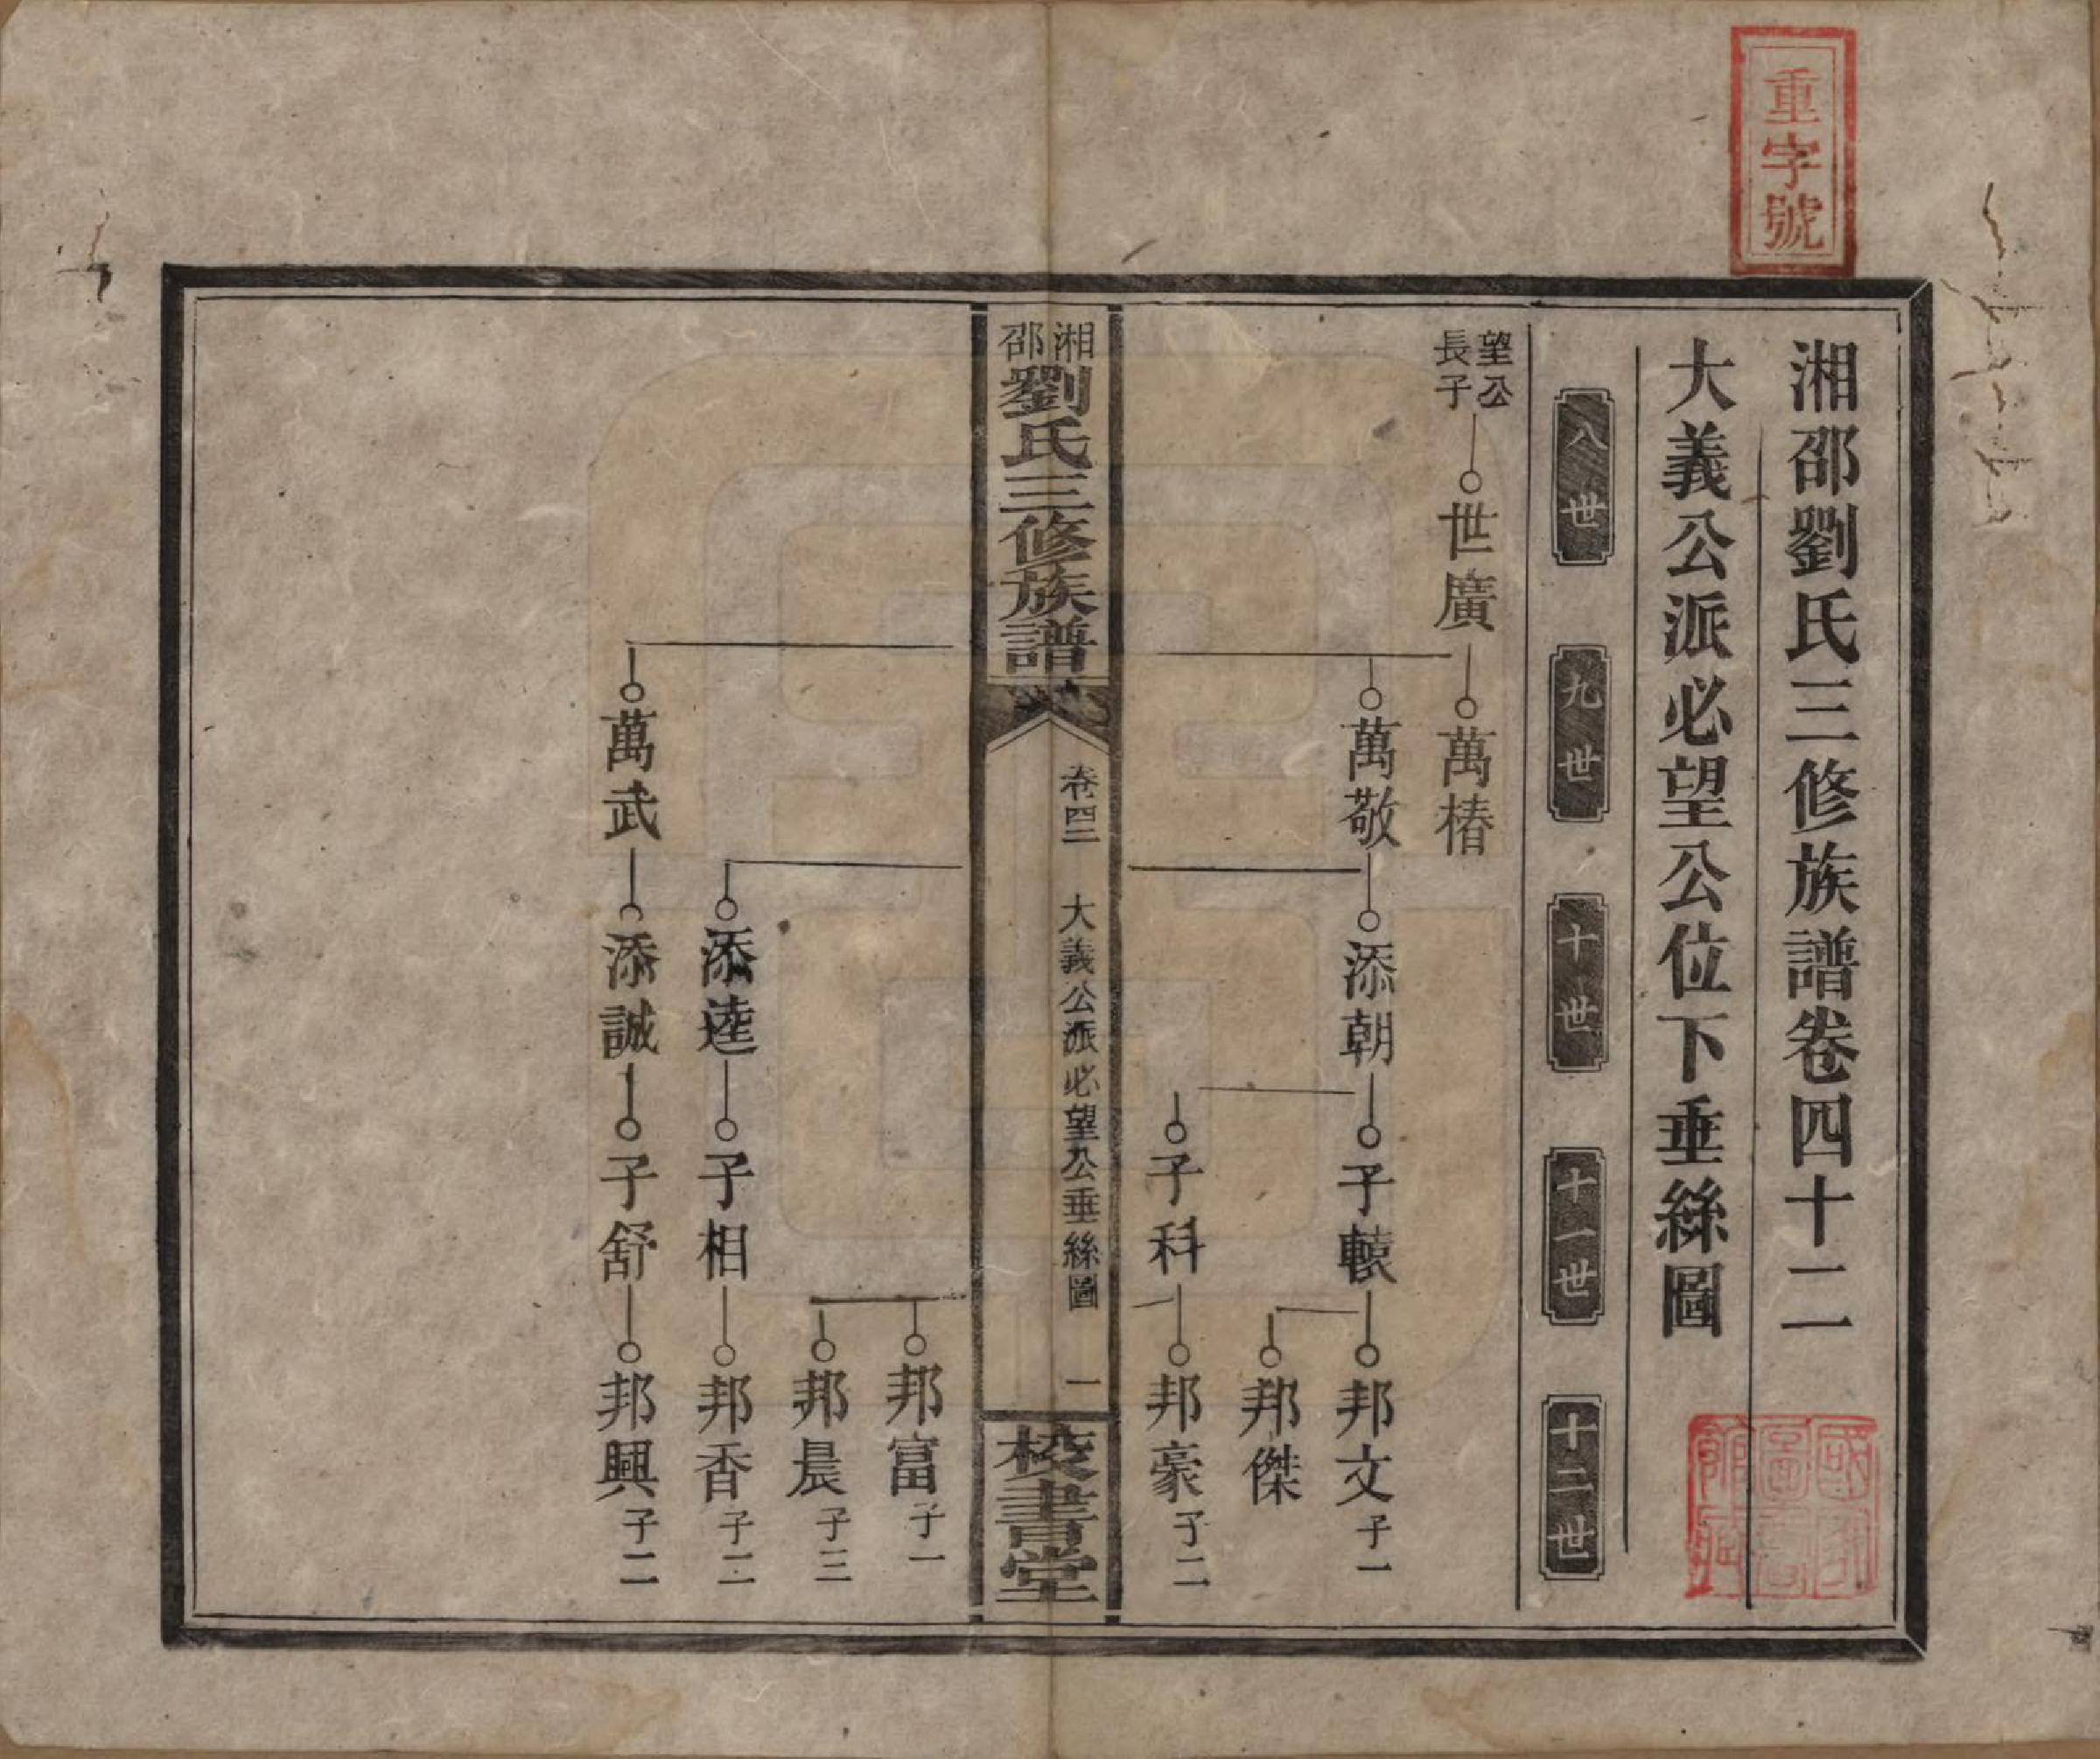 重字號
湘邵劉氏三修族譜卷四十二
大義公派必望公位下垂絲圖
八世
九世
十世
十一世
十二世
望公
長子
世廣
萬椿
萬敬
添朝
子轅
邦文
子一
邦傑
子科
邦豪
子二
湘
邵
劉氏三修族譜
卷四二
大義公派必望公垂絲圖
一
校書堂
邦富
子一
邦晨
子三
添逵
子相
邦香
子二
萬武
添誠
子舒
邦興
子二